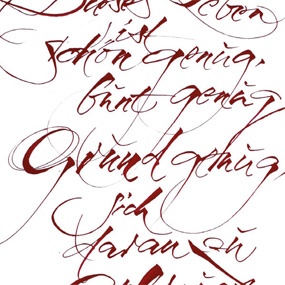 Dieses Leben
ist
schön genug,
bunt genug
Grund genug,
sich
daran zu